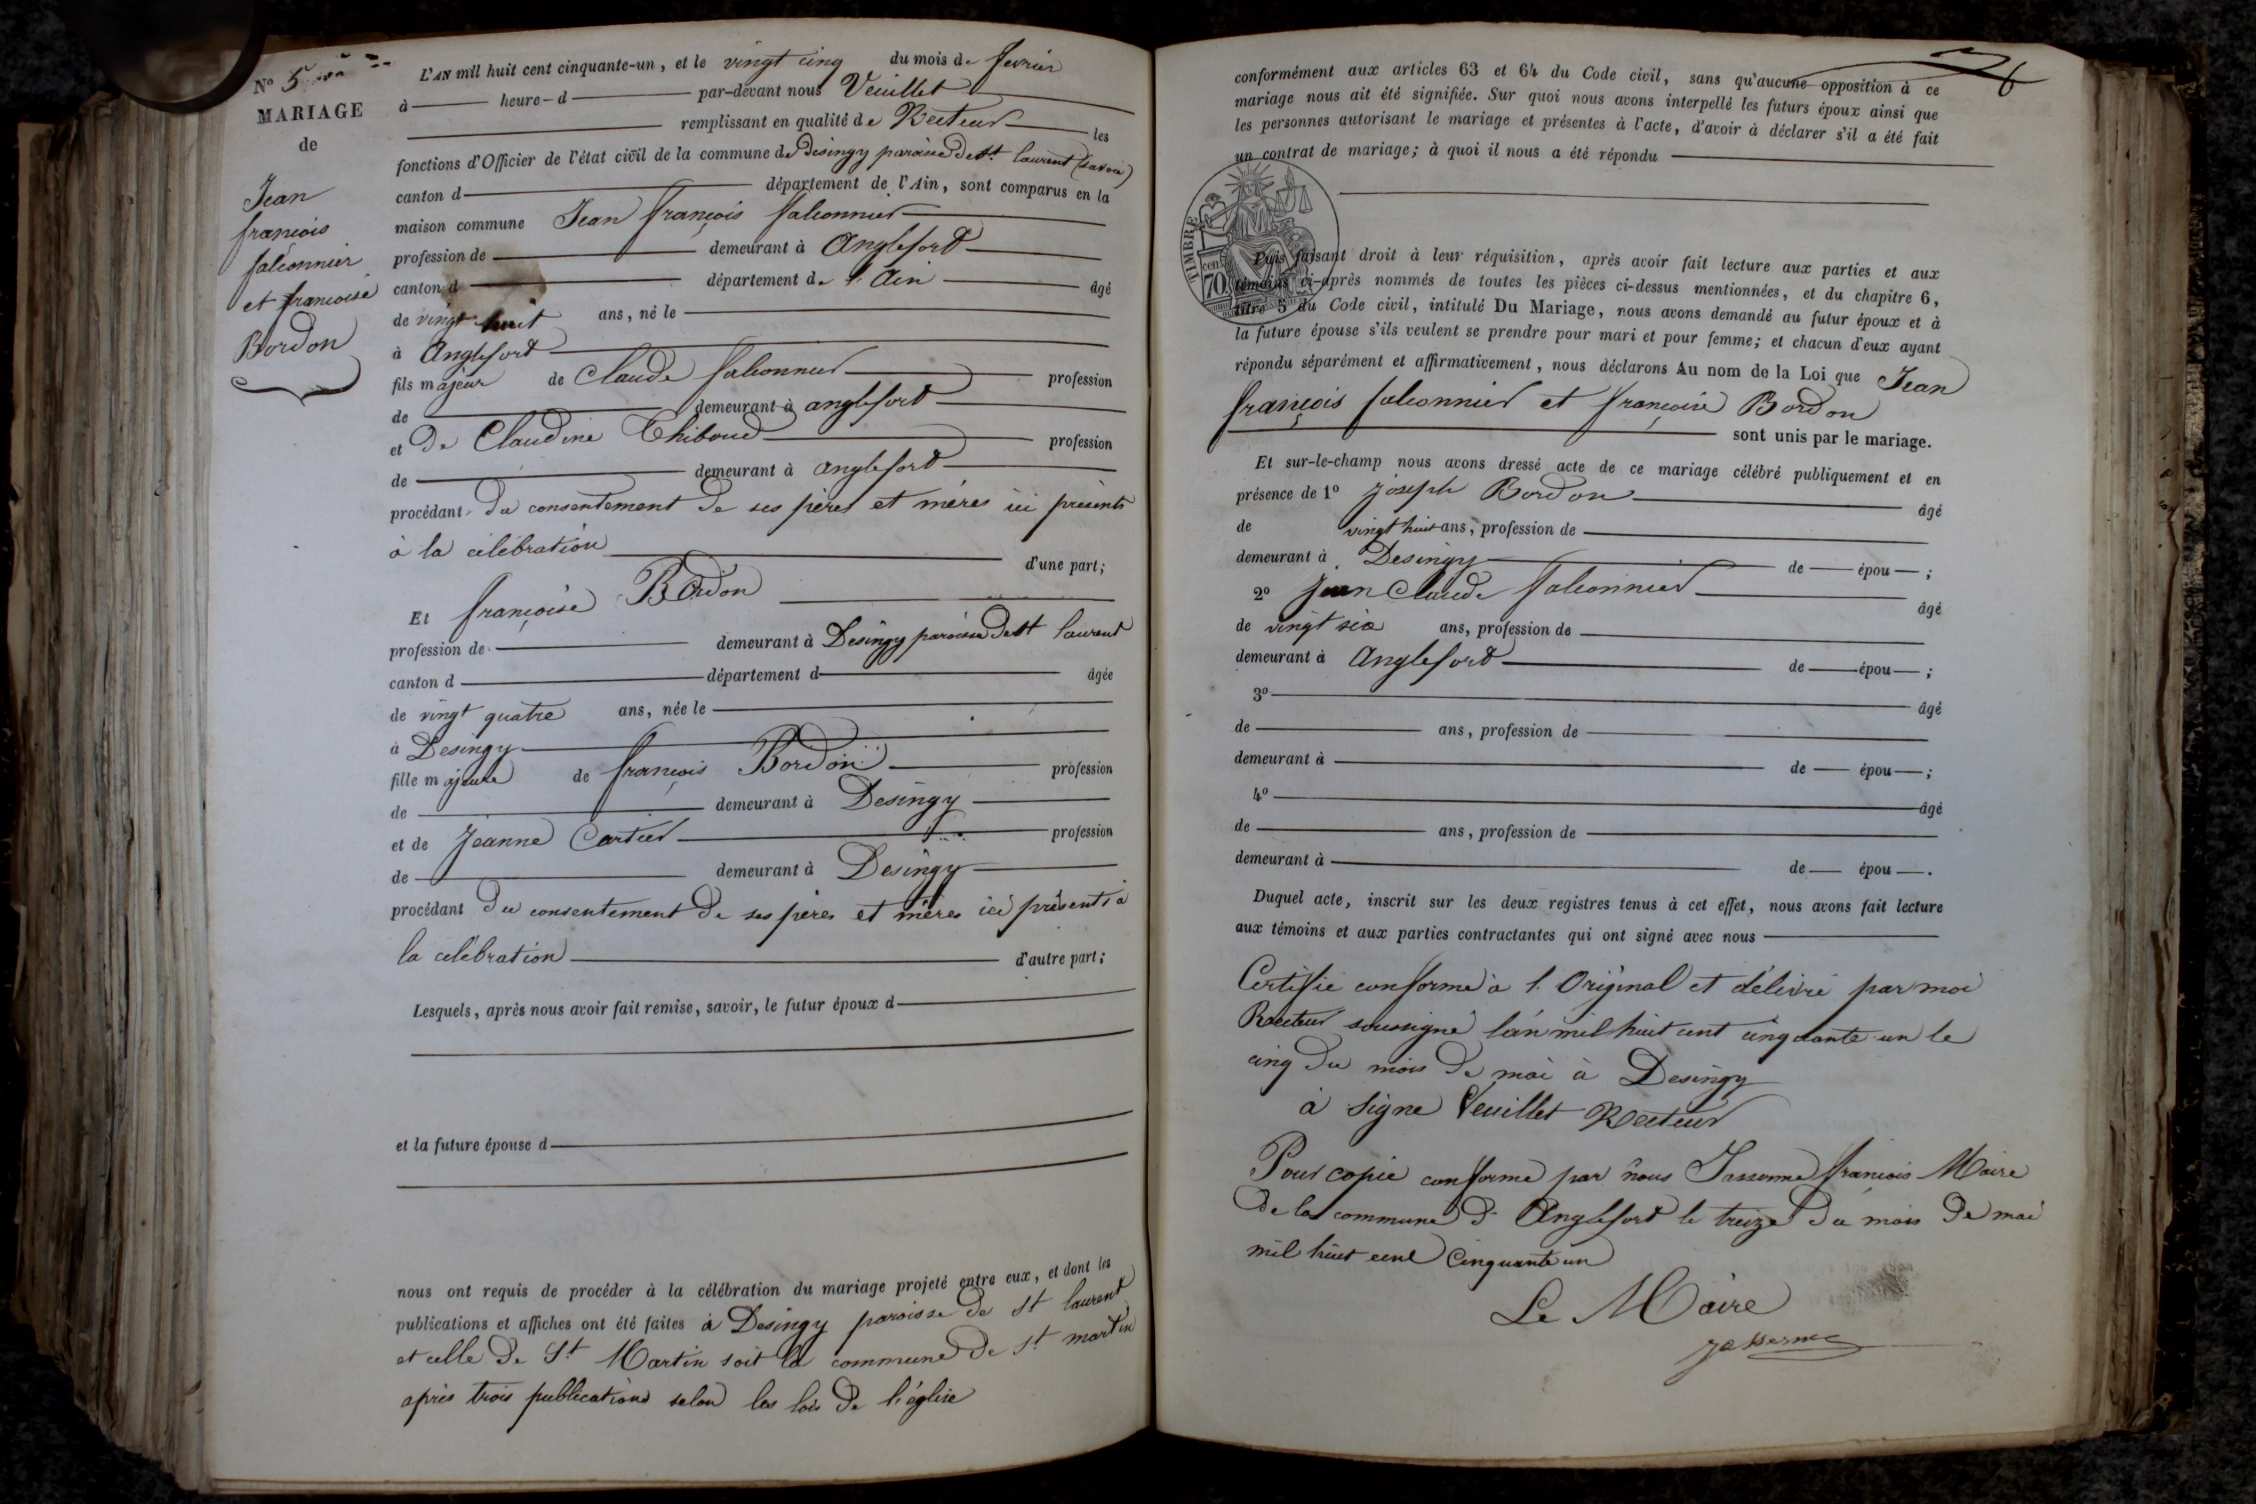 N° 5
MARIAGE
de
Jean
françois
falconnier
et françoise
Bordon
L'AN mil huit cent cinquante-un, et le vingt cinq du mois de fevrier
à heure d par-devant nous Veuillet
remplissant en qualité de Recteur les
fonctions d'Officier de l'état civil de la commune de Desingy paroisse de St. laurent (savoie)
canton d département de l'Ain, sont comparus en la
maison commune Jean françois falconnier
profession de demeurant à Anglefort
canton d département de l'Ain âgé
de vingt huit ans, né le
à Anglefort
fils majeur de Claude falconnier profession
de demeurant à anglefort
et de Claudine Thiboud profession
de demeurant à anglefort
procédant du consentement de ses pères et mères ici présents
à la célébration d'une part;
Et françoise Bordon
profession de demeurant à Desingy paroisse de St laurent
canton d département d âgée
de vingt quatre ans, née le
à Desingy
fille majeure de françois Bordon profession
de demeurant à Desingy
et de Jeanne Cartier profession
de demeurant à Desingy
procédant du consentement de ses pères et mères ici présents à
la célébration d'autre part;
Lesquels, après nous avoir fait remise, savoir, le futur époux d
et la future épouse d
nous ont requis de procéder à la célébration du mariage projeté entre eux, et dont les
publications et affiches ont été faites à Desingy paroisse de St laurent
et celle de St Martin soit la commune de St martin
après trois publications selon les lois de l'église
conformément aux articles 63 et 64 du Code civil, sans qu'aucune opposition à ce
mariage nous ait été signifiée. Sur quoi nous avons interpellé les futurs époux ainsi que
les personnes autorisant le mariage et présentes à l'acte, d'avoir à déclarer s'il a été fait
un contrat de mariage; à quoi il nous a été répondu
TIMBRE
cen
70
Puis faisant droit à leur réquisition, après avoir fait lecture aux parties et aux
témoins ci-après nommés de toutes les pièces ci-dessus mentionnées, et du chapitre 6,
titre 5 du Code civil, intitulé Du Mariage, nous avons demandé au futur époux et à
la future épouse s'ils veulent se prendre pour mari et pour femme; et chacun d'eux ayant
répondu séparément et affirmativement, nous déclarons Au nom de la Loi que Jean
françois falconnier et françoise Bordon
sont unis par le mariage.
Et sur-le-champ nous avons dressé acte de ce mariage célébré publiquement et en
présence de 1° Joseph Bordon âgé
de vingt huit ans, profession de
demeurant à Desingy de épou ;
2° Jean Claude falconnier âgé
de vingt six ans, profession de
demeurant à Anglefort de épou ;
3° âgé
de ans, profession de
demeurant à de épou ;
4° âgé
de ans, profession de
demeurant à de épou .
Duquel acte, inscrit sur les deux registres tenus à cet effet, nous avons fait lecture
aux témoins et aux parties contractantes qui ont signé avec nous
Certifie conforme à l'Original et délivré par moi
Recteur soussigné l'an mil huit cent cinquante un le
cinq du mois de mai à Desingy
à signe Veuillet Recteur
Pour copie conforme par nous Jasserme françois Maire
de la commune d'Anglefort le treize du mois de mai
mil huit cent Cinquante un
Le Maire
Jasserme